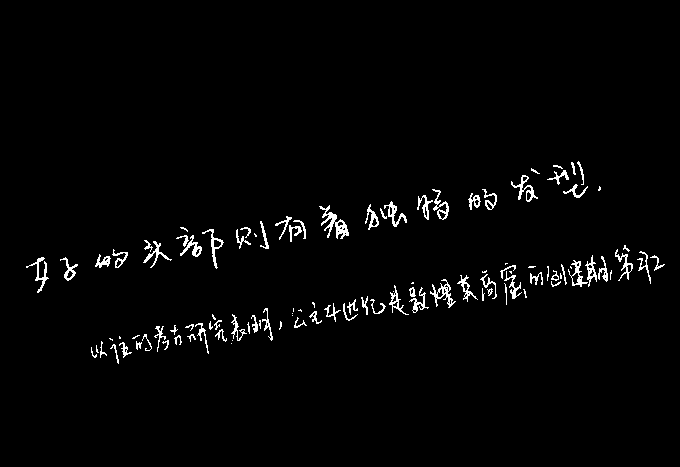 女子的头部则有着独特的发型.
以往的考古研究表明，公元4世纪是敦煌莫高窟的创建期,第